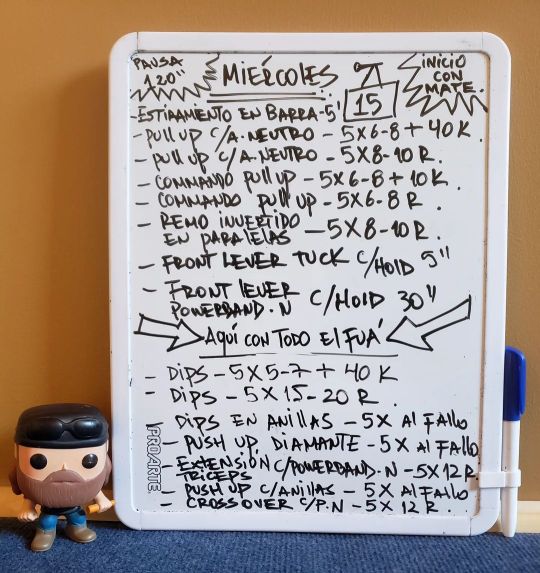 PAUSA
1.20"
MIÉRCOLES
15
INICIO
CON
MATE.
- ESTIRAMIENTO EN BARRA - 5'
- PULL UP C/A. NEUTRO - 5X6-8 + 40 K.
- PULL UP C/A. NEUTRO - 5X8-10 R.
- COMMANDO PULL UP - 5X6-8 + 10 K.
- COMMANDO PULL UP - 5X6-8 R.
- REMO INVERTIDO
EN PARALELAS - 5X8-10 R.
- FRONT LEVER TUCK C/HOLD 5"
- FRONT LEVER
POWERBAND. N C/HOLD 30"
AQUÍ CON TODO El FUÁ
- DIPS - 5X5-7 + 40 K
- DIPS - 5X15-20 R.
DIPS EN ANILLAS - 5X Al FAllO
- PUSH UP DIAMANTE - 5X Al FAllO
- EXTENSIÓN C/POWERBAND. N - 5X12 R.
TRICEPS
- PUSH UP C/ANILLAS - 5X Al FAllO
- CROSSOVER C/P.N - 5X 12 R.
PROARTE